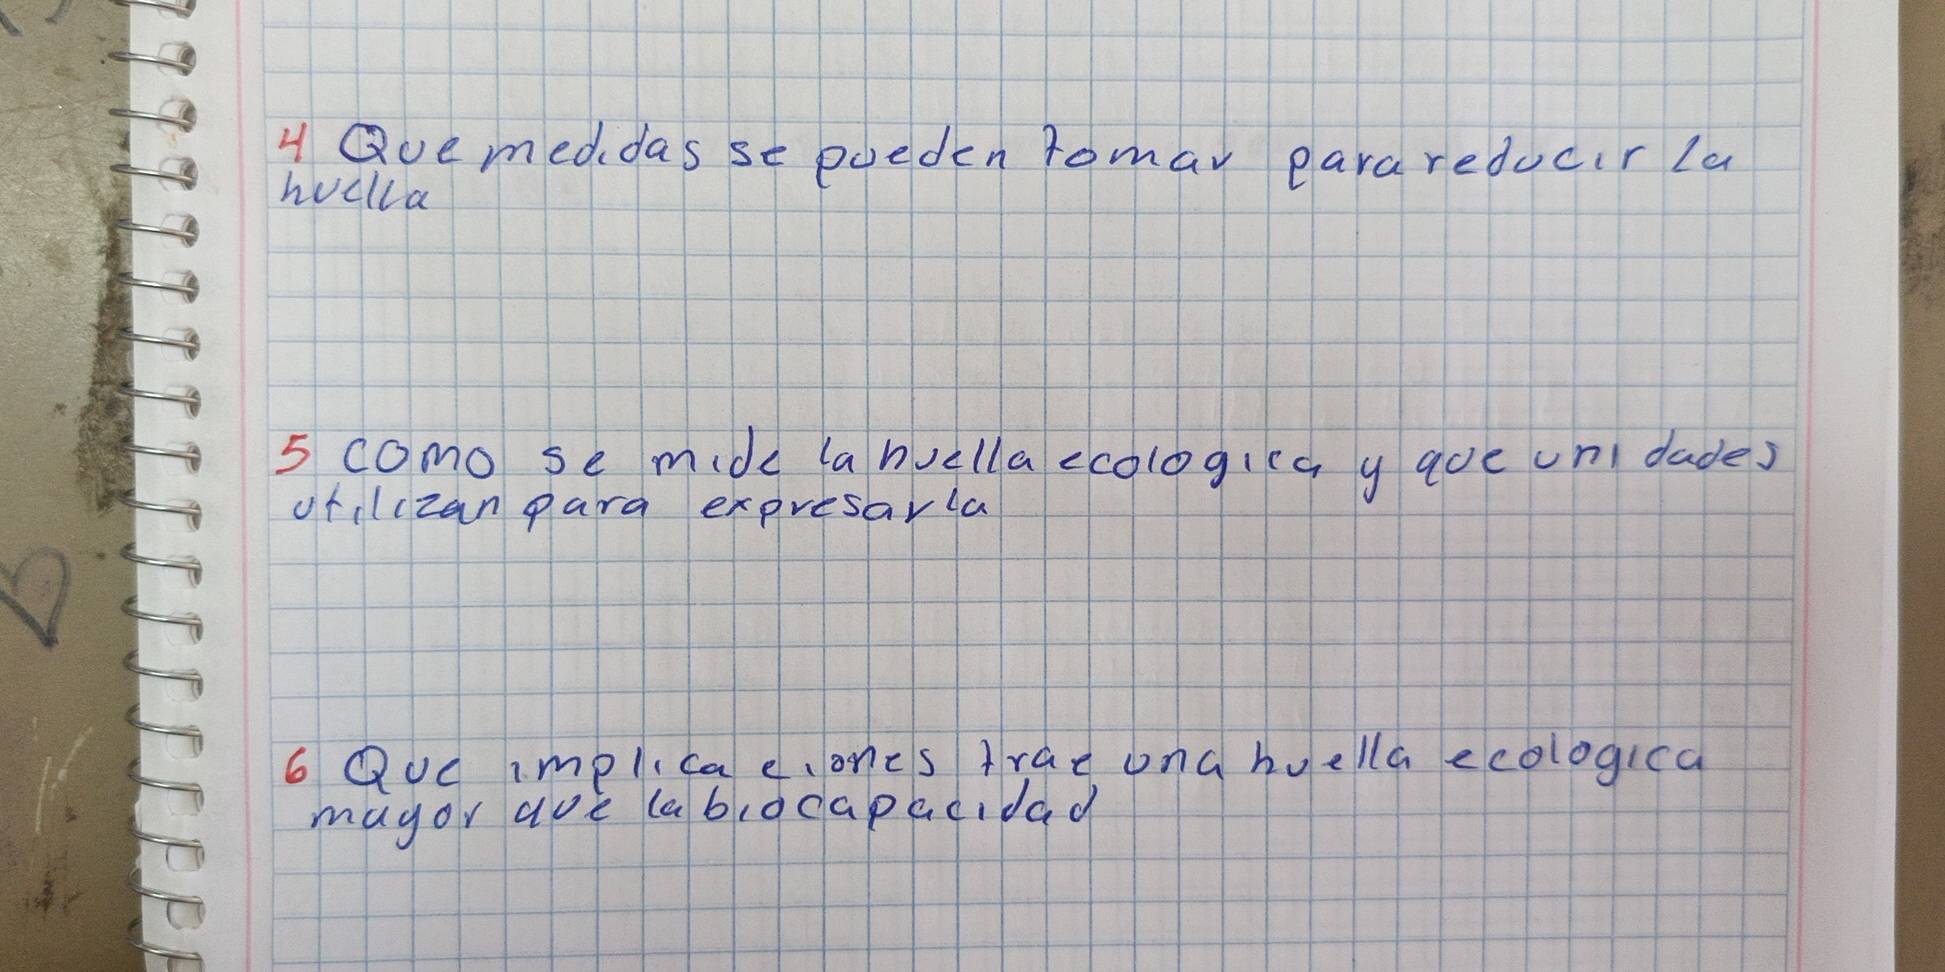 4 Que medidas se pueden tomar para reducir la
huella
5 como se mide la huella ecologica y que unidades
utilizan para expresarla
6 Que implicaciones trae una huella ecologica
mayor que la biocapacidad